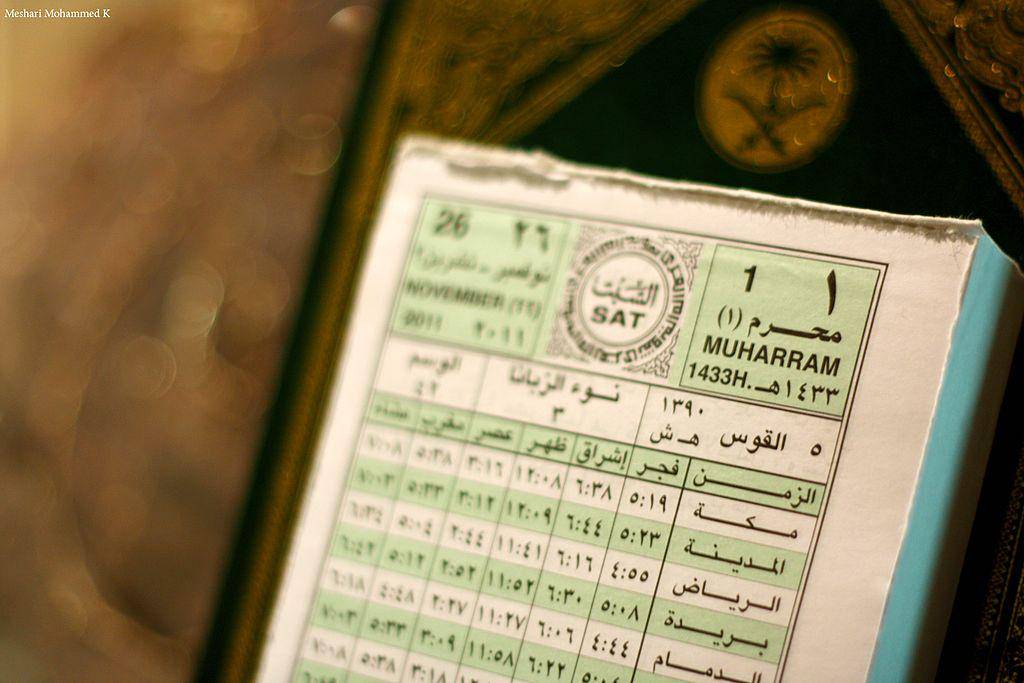 Meshari Mohammed K
١ 1
محرم (١)
MUHARRAM
1433H. ١٤٣٣هـ
السَّبْت
SAT
26 ٢٦
نوفمبر - تشرين٢
NOVEMBER (١١)
2011 ٢٠١١
٥ القوس ١٣٩٠ هـ ش
نوء الزبانا ٣
الوسم ٤٢
الزمن فجر إشراق ظهر عصر مغرب عشاء
مكة ٥:١٩ ٦:٣٨ ١٢:٠٨ ٣:١٦ ٥:٣٨ ٧:٠٨
المدينة ٥:٢٣ ٦:٤٤ ١٢:٠٩ ٣:١٢ ٥:٣٣ ٧:٠٣
الرياض ٤:٥٥ ٦:١٦ ١١:٤١ ٢:٤٤ ٥:٠٤ ٦:٣٤
بريدة ٥:٠٨ ٦:٣٠ ١١:٥٢ ٢:٥٢ ٥:١٢ ٦:٤٢
الدمام ٤:٤٤ ٦:٠٦ ١١:٢٧ ٢:٢٧ ٤:٤٨ ٦:١٨
٦:٢٢ ١١:٥٨ ٣:٠٩ ٥:٣٣ ٧:٠٣
٣:١٨ ٥:٣٨ ٧:٠٨